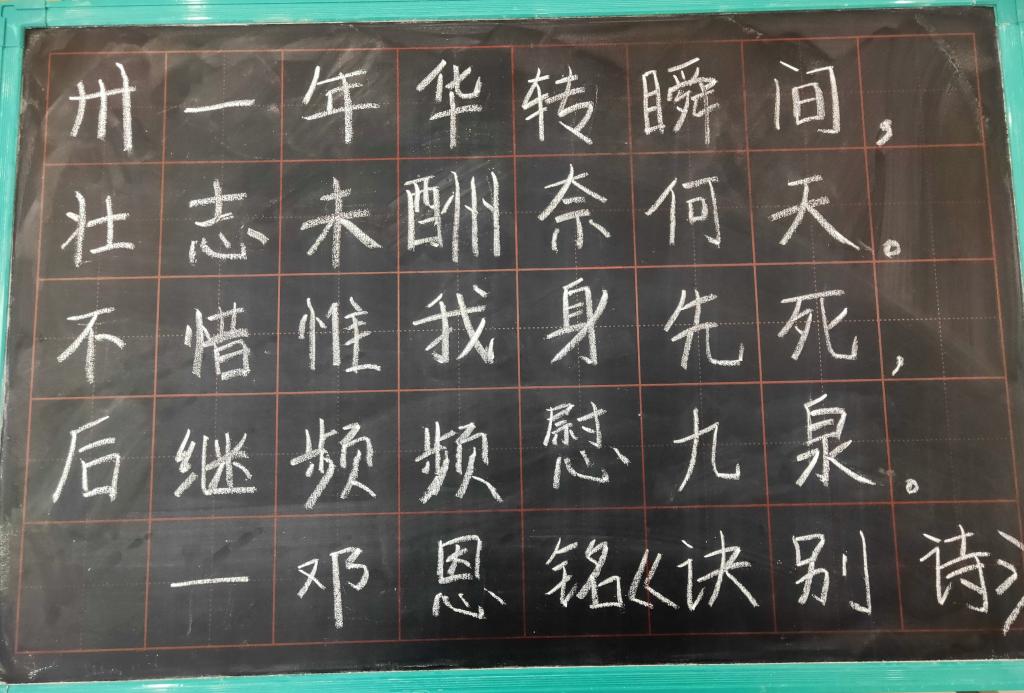 卅一年华转瞬间，
壮志未酬奈何天。
不惜惟我身先死，
后继频频慰九泉。
—邓恩铭《诀别诗》